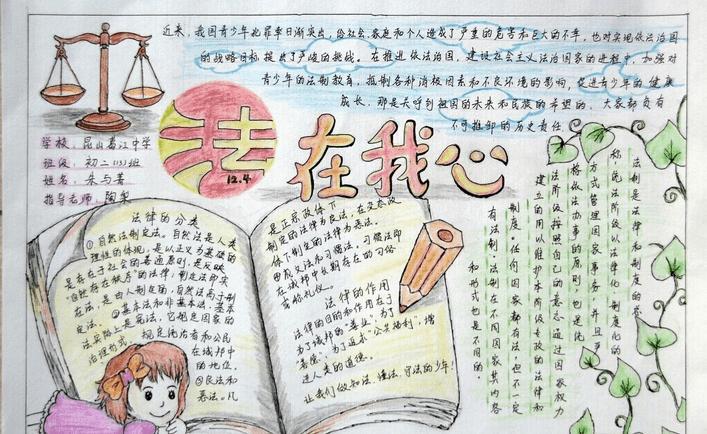 近来，我国青少年犯罪率日渐突出，给社会、家庭和个人造成了严重的危害和巨大的不幸，也对实现依法治国
的战略目标提出了严峻的挑战。在推进依法治国，建设社会主义法治国家的进程中，加强对
青少年的法制教育，抵制各种消极因素和不良环境的影响，促进青少年的健康
成长，那是关呼到祖国的未来和民族的希望的，大家都负有
不可推卸的历史责任。
法在我心
12.4
学校：昆山葛江中学
班级：初二(13)班
姓名：朱与菁
指导老师：陶梨
法律的分类
①自然法制定法。自然法是人类
理性的体现，是以正义为基础的
是存在于社会的普通原则，是反映
"自然存在秩序"的法律；制定法即实
在法，是由人制定的，自然法高于制
定法。②基本法和非基本法，基本
法实际上是宪法，它规定国家的
治理形式，规定统治者和公民
在城邦中
的地位。
③良法和
恶法。凡
是正宗政体下
制定的法律为良法，在变态政
体下制定的法律为恶法。
④成文法和习惯法，习惯法即
在城邦中长期存在的习俗
或者礼仪。
法律的作用
法律的目的和作用在于
为了城邦的"善业"，为了
"善德"，为了追求"公共福利"，增
进人类的道德。
让我们做知法、懂法、守法的少年！
法制是法律和制度的总
称，统治阶级以法律化、制度化的
方式管理国家事务，并且严
格依法办事的原则，也是统
治阶级按照自己的意志通过国家权力
建立的用以维护本阶级专政的法律和
制度，任何国家都有法，但不一定
有法制，法制在不同国家其内容
和形式也是不同的。